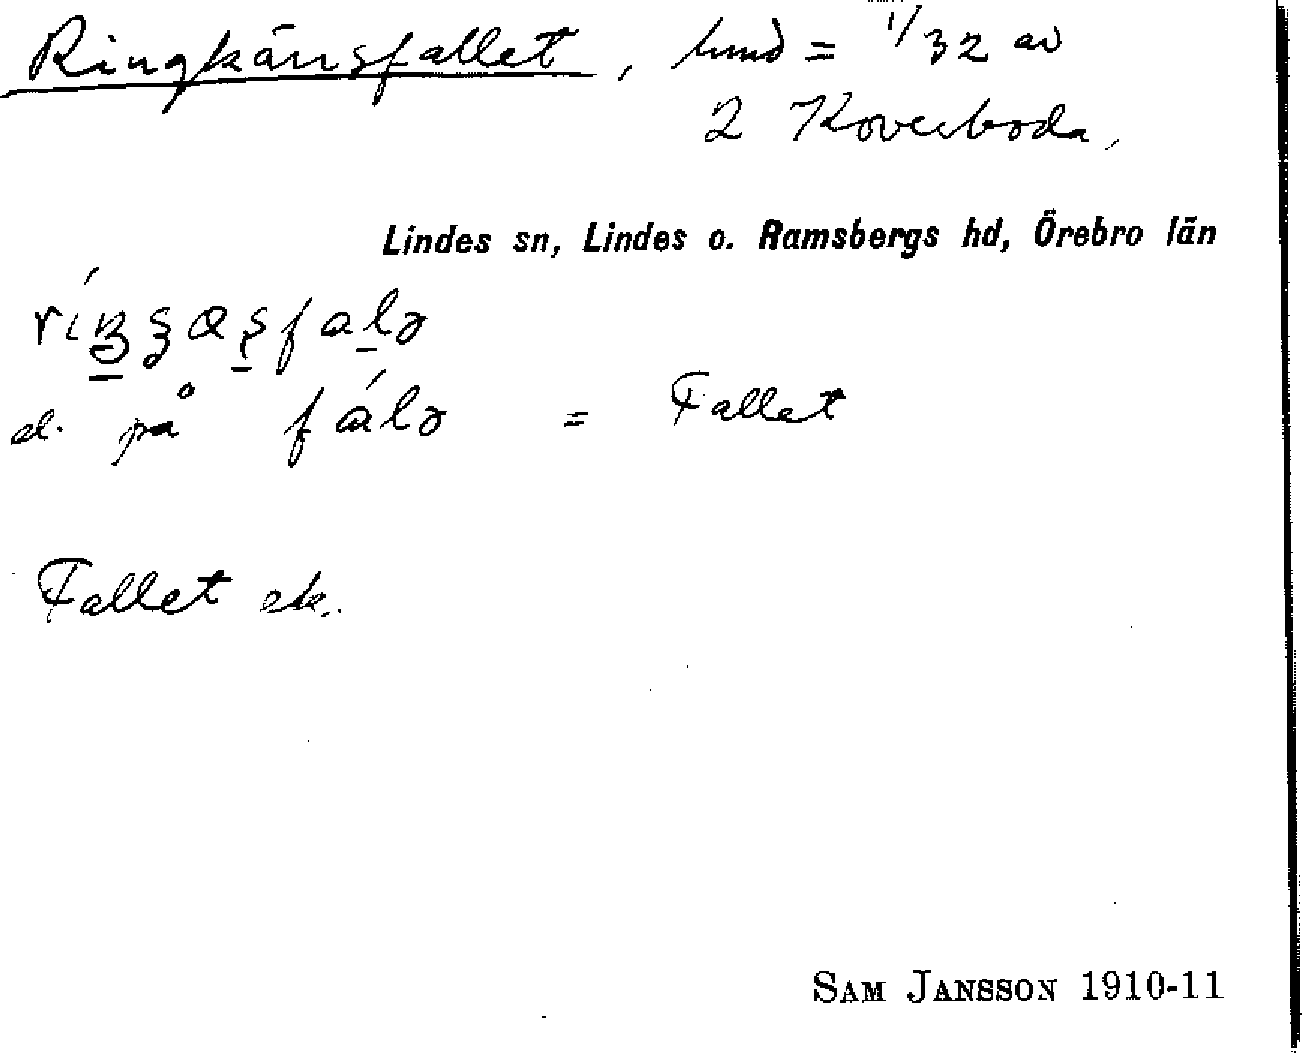 Ringkärrsfallet, hmd = 1/32 av
2 Koverboda,
Lindes sn, Lindes o. Ramsbergs hd, Örebro län
el. på fálə = Fallet
Fallet ek.
SAM JANSSON 1910-11